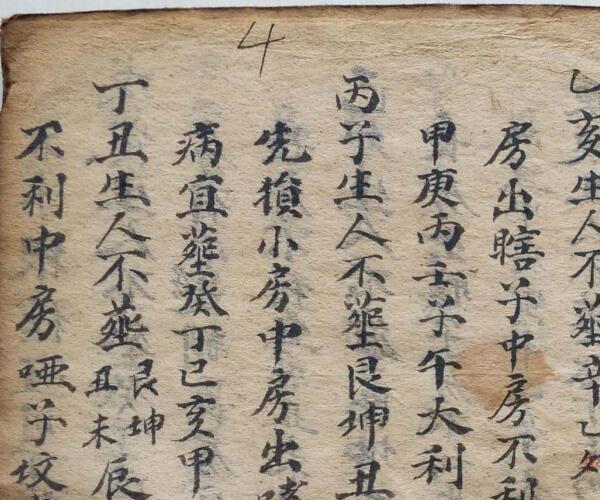 乙亥生人不葬辛乙
房出瞎子中房不利
甲庚丙壬子午大利
丙子生人不葬艮坤丑
先損小房中房出
病宜葬癸丁巳亥甲
丁丑生人不葬艮坤丑未辰
不利中房啞子坟
4